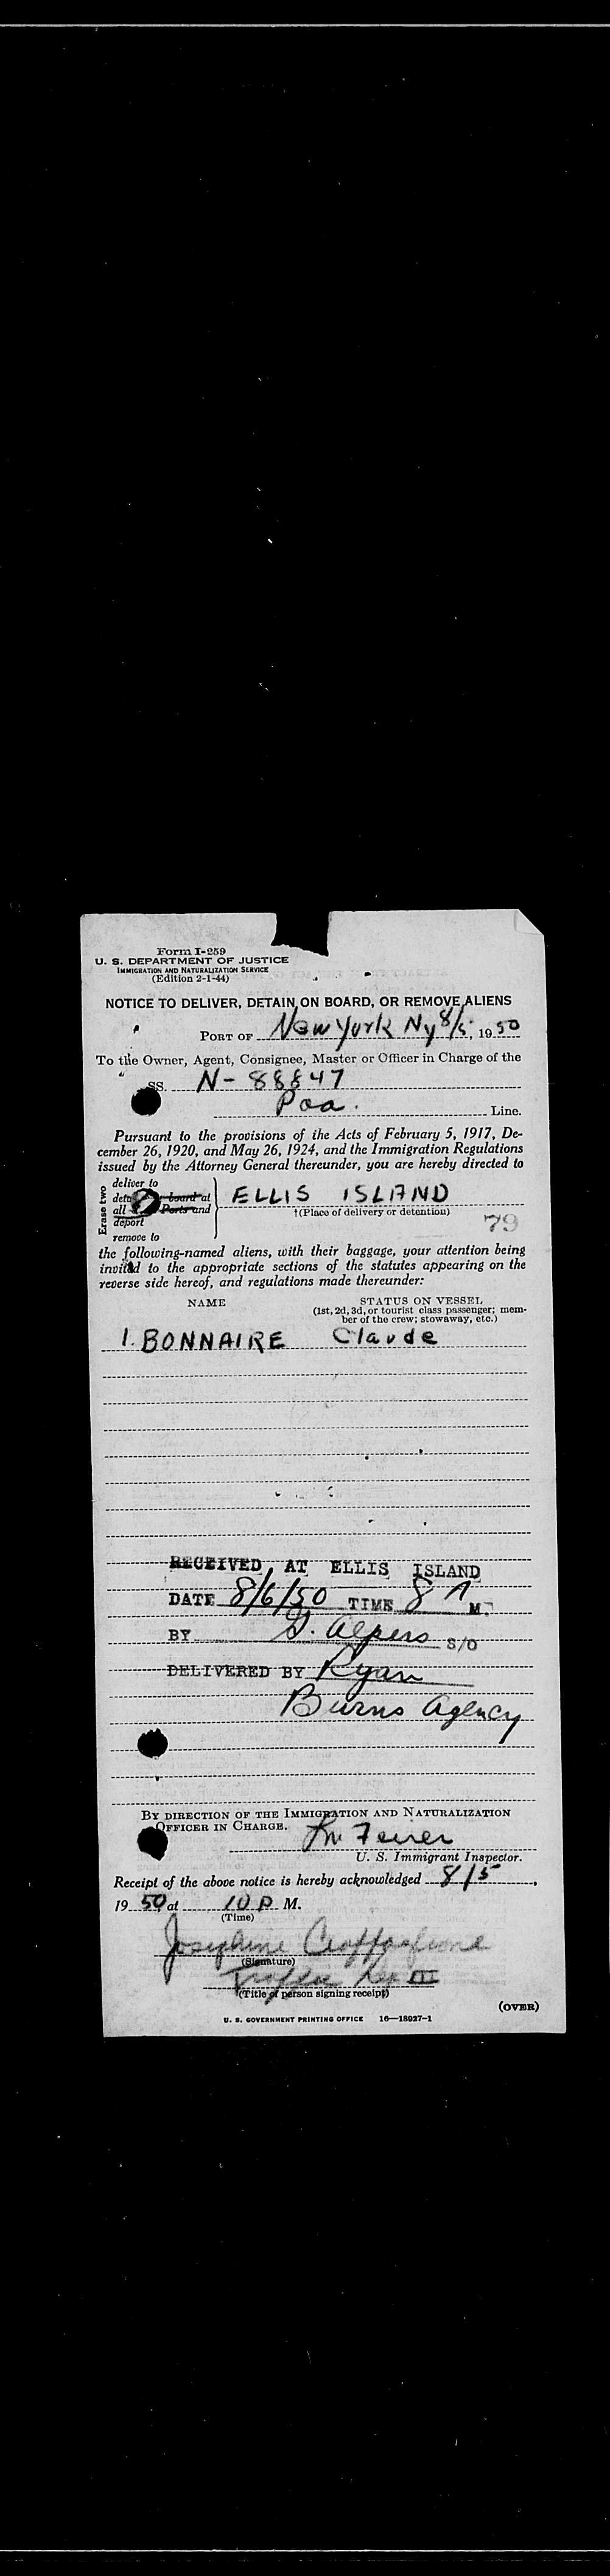 Form I-259
U. S. DEPARTMENT OF JUSTICE
IMMIGRATION AND NATURALIZATION SERVICE
(Edition 2-1-44)
NOTICE TO DELIVER, DETAIN ON BOARD, OR REMOVE ALIENS
PORT OF New York Ny 8/5, 1950
To the Owner, Agent, Consignee, Master or Officer in Charge of the
SS. N-88847
Paa. Line.
Pursuant to the provisions of the Acts of February 5, 1917, De-
cember 26, 1920, and May 26, 1924, and the Immigration Regulations
issued by the Attorney General thereunder, you are hereby directed to
Erase two
deliver to
board at
all Ports and
deport
remove to
ELLIS ISLAND
†(Place of delivery or detention)
79
the following-named aliens, with their baggage, your attention being
invited to the appropriate sections of the statutes appearing on the
reverse side hereof, and regulations made thereunder:
NAME STATUS ON VESSEL
(1st, 2d, 3d, or tourist class passenger; mem-
ber of the crew; stowaway, etc.)
1. BONNAIRE Claude
RECEIVED AT ELLIS ISLAND
DATE 8/6/50 TIME 8 A M.
BY G. Alpers S/O
DELIVERED BY Ryan
Burns Agency
BY DIRECTION OF THE IMMIGRATION AND NATURALIZATION
OFFICER IN CHARGE.
Feirer
U. S. Immigrant Inspector.
Receipt of the above notice is hereby acknowledged 8/5,
19 50 at 10 P M.
(Time)
Josephine
(Signature)
Rep III
(Title of person signing receipt)
(OVER)
U. S. GOVERNMENT PRINTING OFFICE 16—18927-1